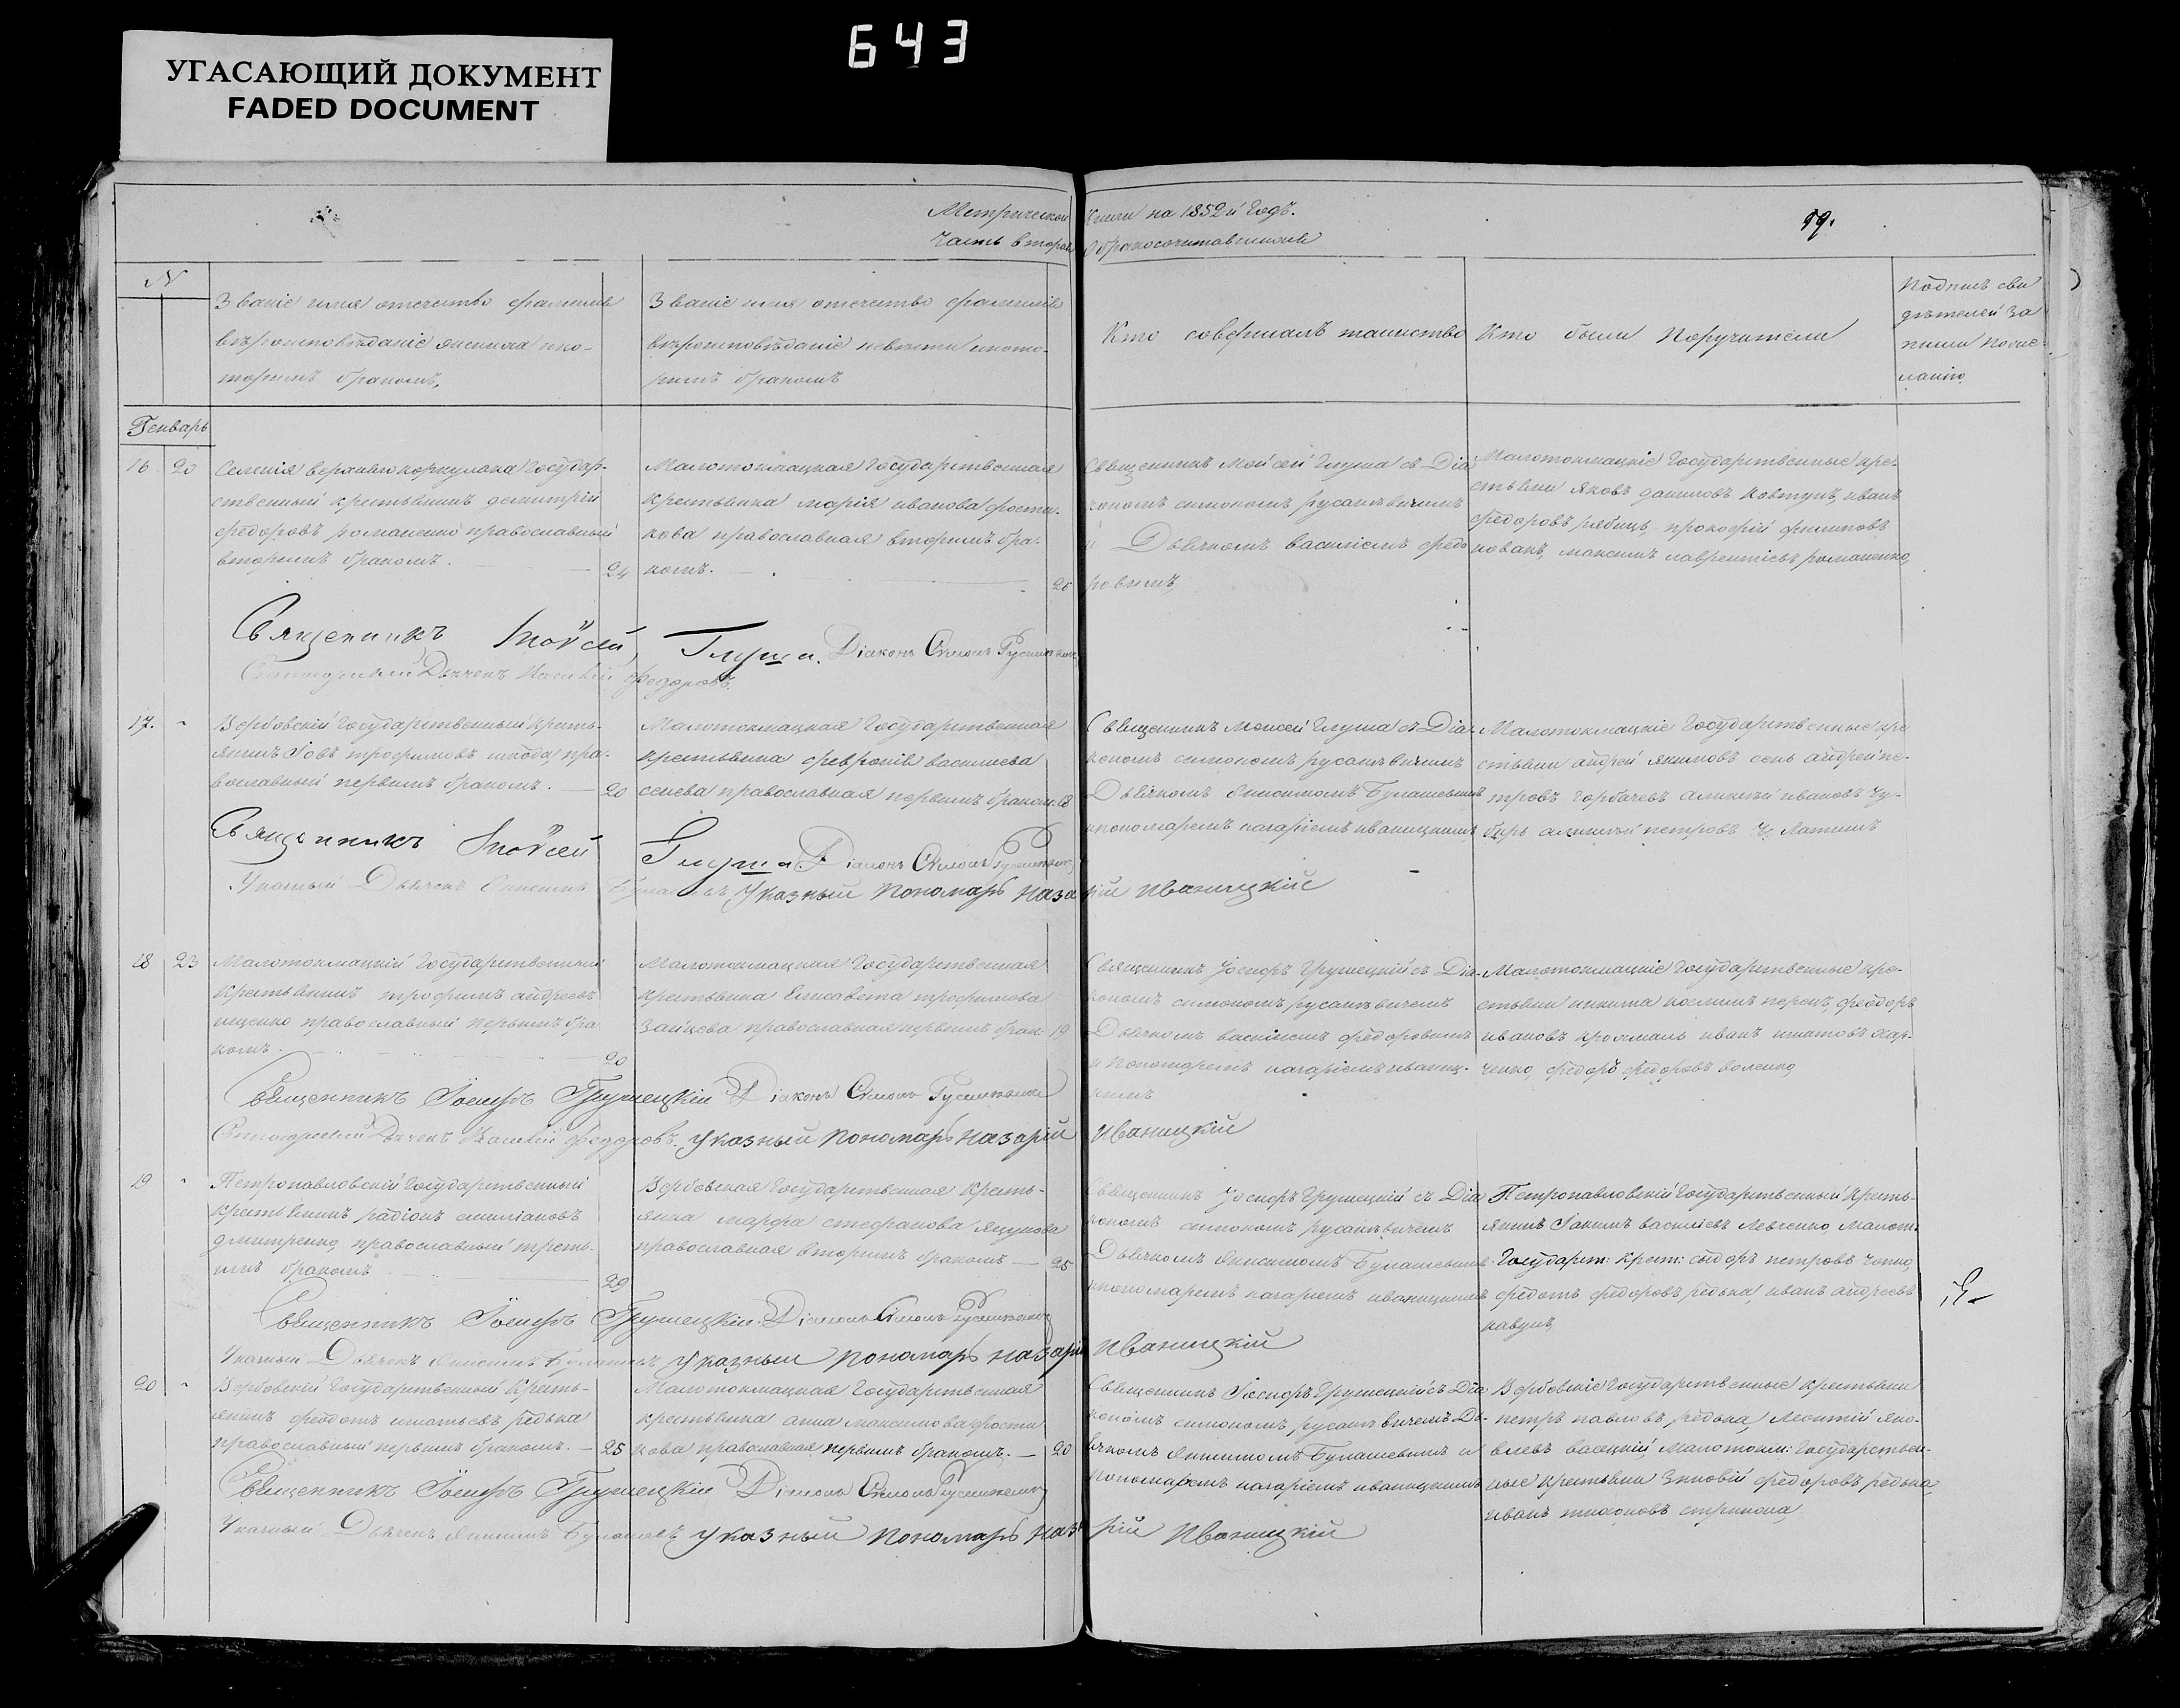 643
УГАСАЮЩИЙ ДОКУМЕНТ
FADED DOCUMENT
Метрической книги на 1852й годъ.
Часть вторая о бракосочитавшихся
99.
N
Званіе имя отечество фамилія
вѣроисповѣданіе жениха и ко-
торымъ бракомъ.
Званіе имя отечество фамилія
вѣроисповѣданіе невѣсты и кото-
рымъ бракомъ
Кто совершалъ таинство
Кто были Поручители
Подпись сви
дѣтелей за
писи по же
ланію
Генварь
16 20
Селенія верхняго коркулака государ-
ственный крестьянинъ димитрій
федоровъ романенко православный
вторымъ бракомъ. 24
Малотокмацкая государственная
крестьянка марія иванова
православная вторымъ бра-
комъ. 26
Священникъ Мойсей глуша съ Діа
кономъ симономъ русаневичемъ
и Дьячкомъ василіемъ федо
ровымъ
Малотокмацкіе государственные кре-
стьяни яковъ даниловъ ковтунъ, иванъ
федоровъ рябиць, прокофій филиповъ
максимъ лаврентіевъ романенко,
Священникъ Мойсей Глуша. Діаконъ Симонъ Русаневичъ
Дьячекъ Василій Федоровъ.
17. "
Вербовскій государственный кресть-
янинъ Іовъ трофимовъ шкода, пра-
вославный первымъ бракомъ. 20
Малотокмацкая государственная
крестьянка февронія василиева
сенева православная первымъ браком: 18
Священникъ Моисей глуша съ Діа-
кономъ симономъ русаневичемъ
Дьячкомъ Онисимомъ Булашевымъ
и пономаремъ назаріемъ иваницкимъ
Малотокмацкіе государственные кре
стьяни андрей якимовъ сень андрей пе-
тровъ горбачевъ алексѣй ивановъ Чу-
бирь алексѣй петровъ Латишъ
Священникъ Мойсей Глуша Діаконъ Симонъ Русаневичъ
Указный Дьячекъ Онисимъ Булашевъ Указный Пономарь Назарій Иваницкій
18 23
Малотокмацкій государственный
крестьянинъ трофимъ андреевъ
ищенко православный первымъ бра
комъ. 20
Малотокмацкая государственная
крестьянка Елисавета трофимова
Зайцева православная первымъ брак: 19
Священникъ Іосифъ Грушецкій съ Діа-
кономъ симономъ русаневичемъ
Дьячкомъ василіемъ федоровымъ
и Пономаремъ назаріемъ иваниц-
кимъ
Малотокмацкіе государственные кре-
стьяни никита космин феодоръ
ивановъ крохмаль иванъ игнатовъ хар-
ченко, федоръ федоровъ воленко,
Священникъ Іосифъ Грушецкій Діаконъ Симонъ Русаневичъ
Дьячекъ Василій Федоровъ. Указный Пономарь Назарій Иваницкій
19 "
Петропавловскій государственный
крестьянинъ радіонъ емиліановъ
дмитренко, православный треть-
имъ бракомъ 29
Вербовская государственная кресть-
янка марфа стефанова Яцунова
православная вторымъ бракомъ 25
Священникъ Іосифъ Грушецкій съ Діа
кономъ симономъ русаневичемъ
Дьячкомъ Онисимомъ Булашевымъ
и пономаремъ назаріемъ иваницкимъ
Петропавловскій государственный кресть-
янинъ Іакимъ василіевъ Левченко, Малот:
Государст: крест: сидоръ петровъ
федотъ федоровъ редька, иванъ андреевъ
кавунъ,
Священникъ Іосифъ Грушецкій Діаконъ Симонъ Русаневичъ
Указный Дьячекъ Онисимъ Булашевъ Указный Пономарь Назарій Иваницкій
20 "
Вербовскій государственный кресть-
янинъ феодотъ игнатьевъ редька
православный первымъ бракомъ. 25
Малотокмацкая государственная
крестьянка анна максимова
православная первымъ бракомъ. 20
Священникъ Іосифъ Грушецкій съ Діа
кономъ симономъ русаневичемъ Дь-
ячкомъ Онисимомъ Булашевымъ и
Пономаремъ назаріемъ иваницкимъ
Вербовскіе государственные крестьяни
петръ павловъ редька, Леонтій яко-
влевъ васецкій, Малотокм: государствен-
ные крестьяни Зиновій федоровъ редька,
иванъ тихоновъ стрикоха,
Священникъ Іосифъ Грушецкій Діаконъ Симонъ Русаневичъ
Указный Дьячекъ Онисимъ Булашевъ Указный Пономарь Назарій Иваницкій